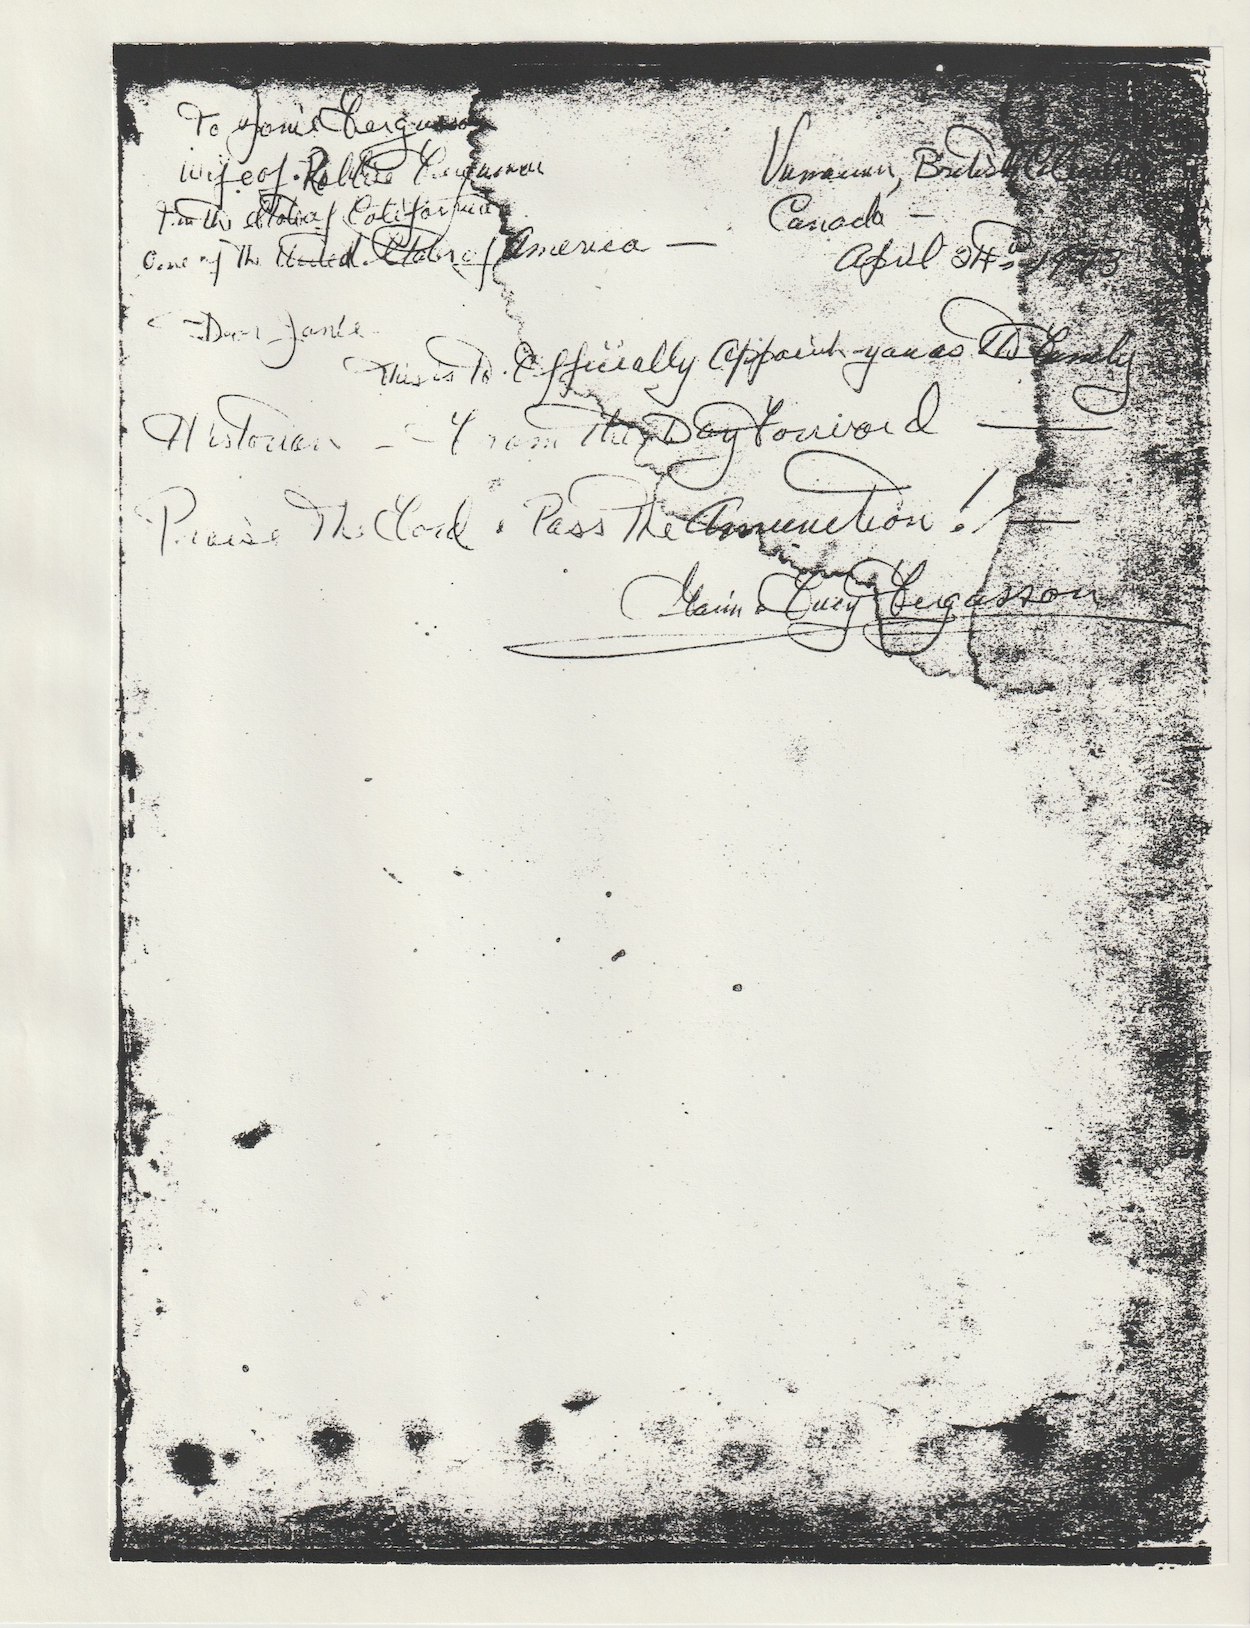 To Janie Fergusson
Wife of Robbie Fergusson
In the State of California
One of The United States of America —
Vancouver, British Columbia
Canada —
April 24th 1973
Dear Janie
This is To Officially Appoint you as The Family
Historian — From This Day Forward —
Praise The Lord & Pass The Ammunition! —
Fergusson